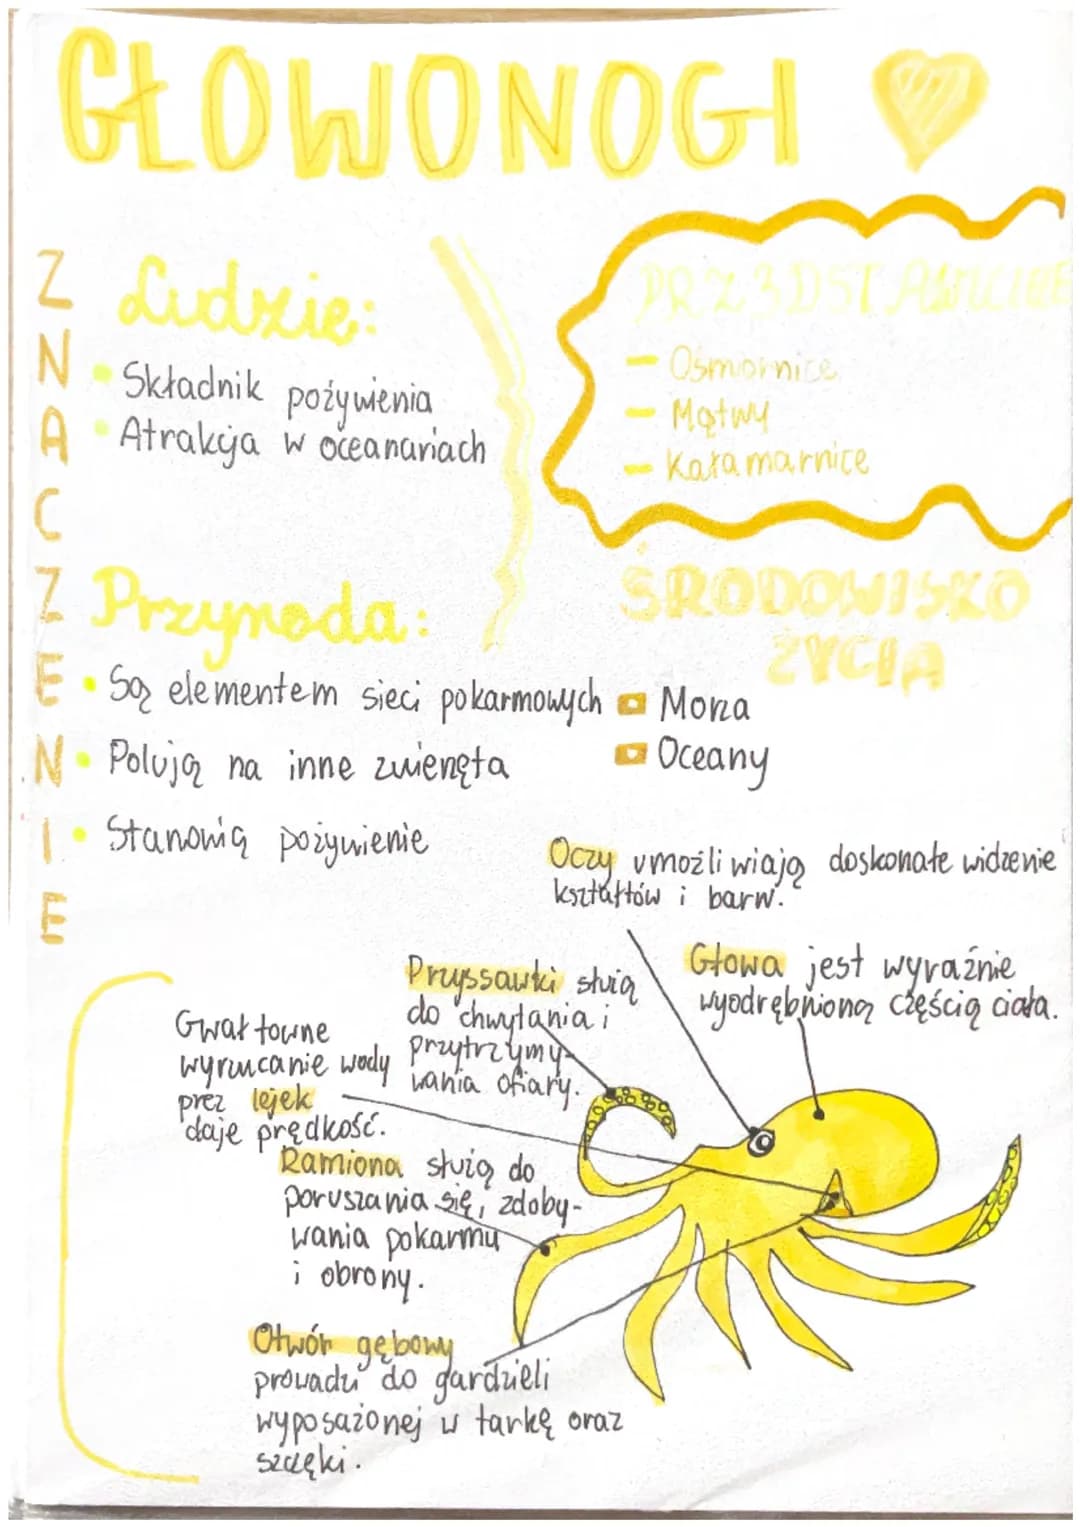 GŁOWONOGI
ZNACZENIE
Ludzie:
Składnik pożywienia
Atrakcja w oceanariach
Przyroda:
Są elementem sieci pokarmowych
Polują na inne zwierzęta
Stanowią pożywienie
PRZ3DSTAWICIELE
- Ośmiornice
- Mątwy
- Kałamarnice
ŚRODOWISKO
ŻYCIA
Morza
Oceany
Oczy umożliwiają doskonałe widzenie
kształtów i barw.
Głowa jest wyraźnie
wyodrębnioną częścią ciała.
Przyssawki służą
do chwytania i
przytrzymy-
wania ofiary.
Gwałtowne
wyrzucanie wody
przez lejek
daje prędkość.
Ramiona służą do
poruszania się, zdoby-
wania pokarmu
i obrony.
Otwór gębowy
prowadzi do gardzieli
wyposażonej w tarkę oraz
szczęki.